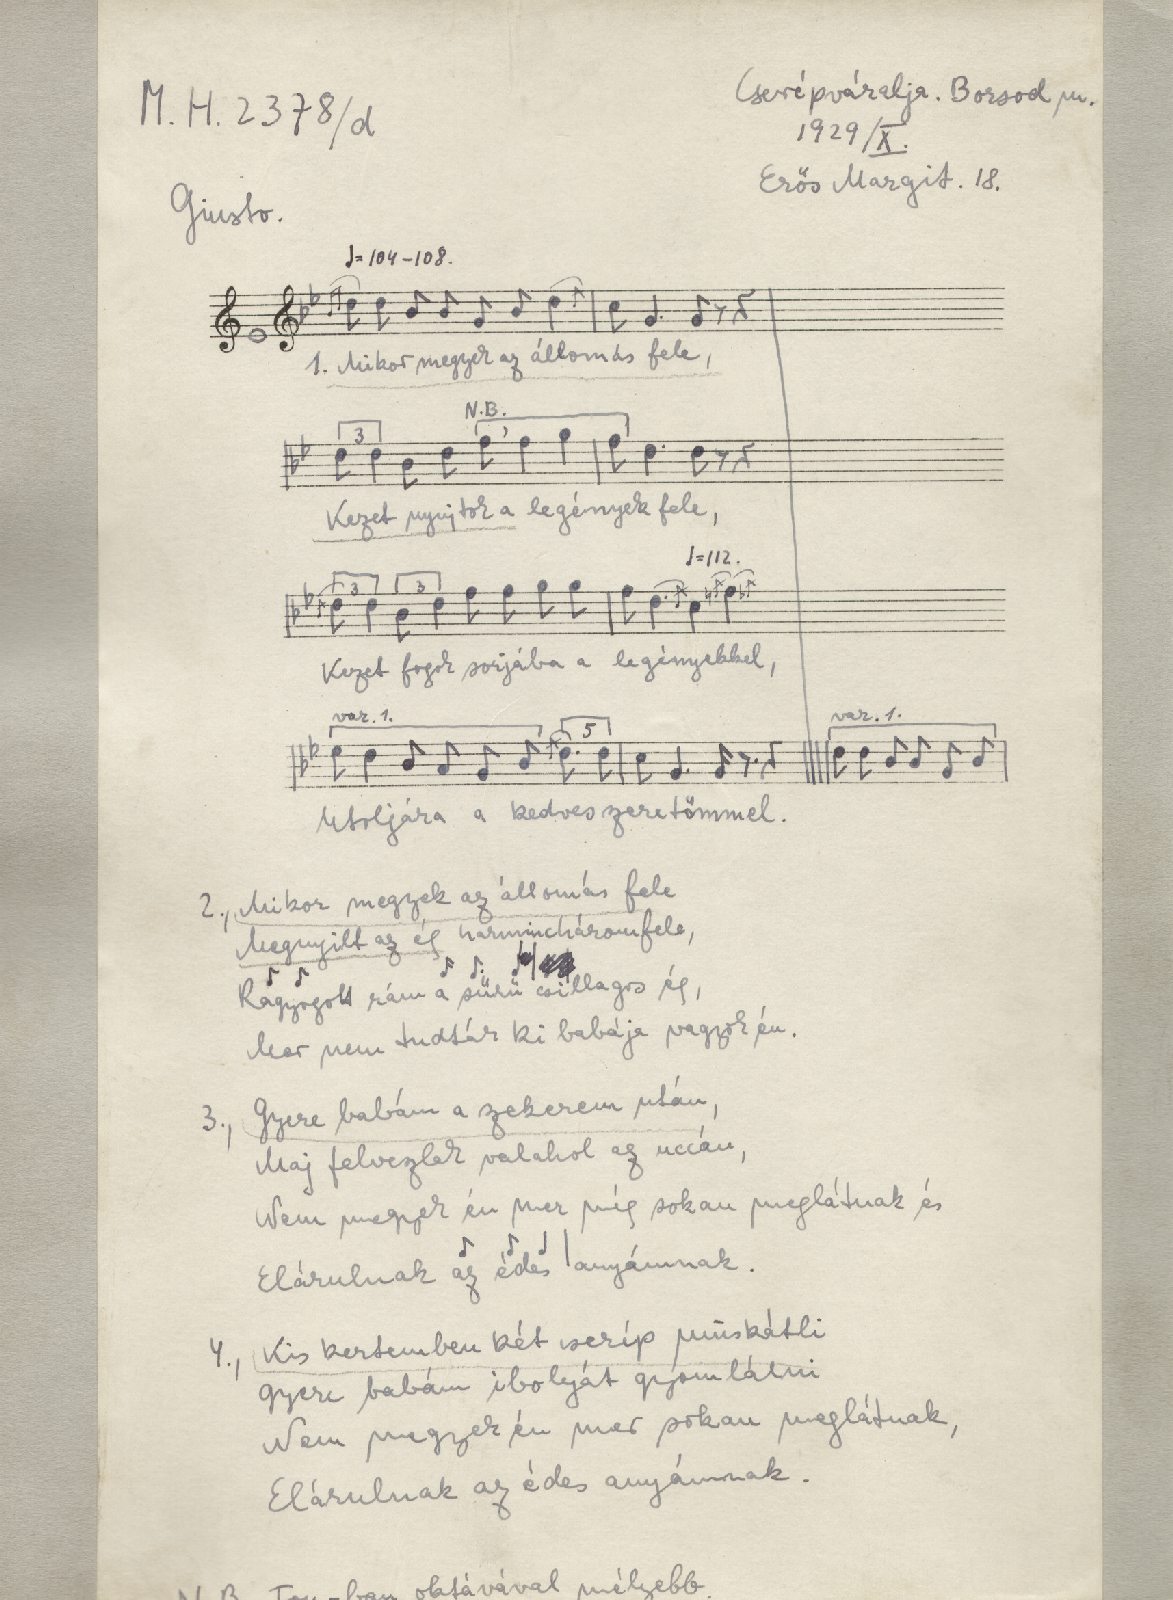 M. H. 2378/d
Cserépváralja. Borsod m.
1929/X.
Erős Margit. 18.
Giusto.
♩=104-108.
1. Mikor megyek az állomás fele,
N.B.
3
Kezet nyujtok a legények fele,
♩=112.
3 3
Kezet fogok sorjába a legényekkel,
var. 1. 5 var. 1.
Utoljára a kedves szeretőmmel.
2., Mikor megyek az állomás fele
Megnyilt az ég harminchárom fele,
Ragyogott rám a sürü csillagos ég,
Mer nem tudták ki babája vagyok én.
3., Gyere babám a zekerem után,
Maj felveszlek valahol az uccán,
Nem megyek én mer még sokan meglátnak és
Elárulnak az édes anyámnak.
4., Kis kertemben két cserép muskátli
gyere babám ibolyát gyomlálni
Nem megyek én mer sokan meglátnak,
Elárulnak az édes anyámnak.
N.B. oktávával mélyebb.